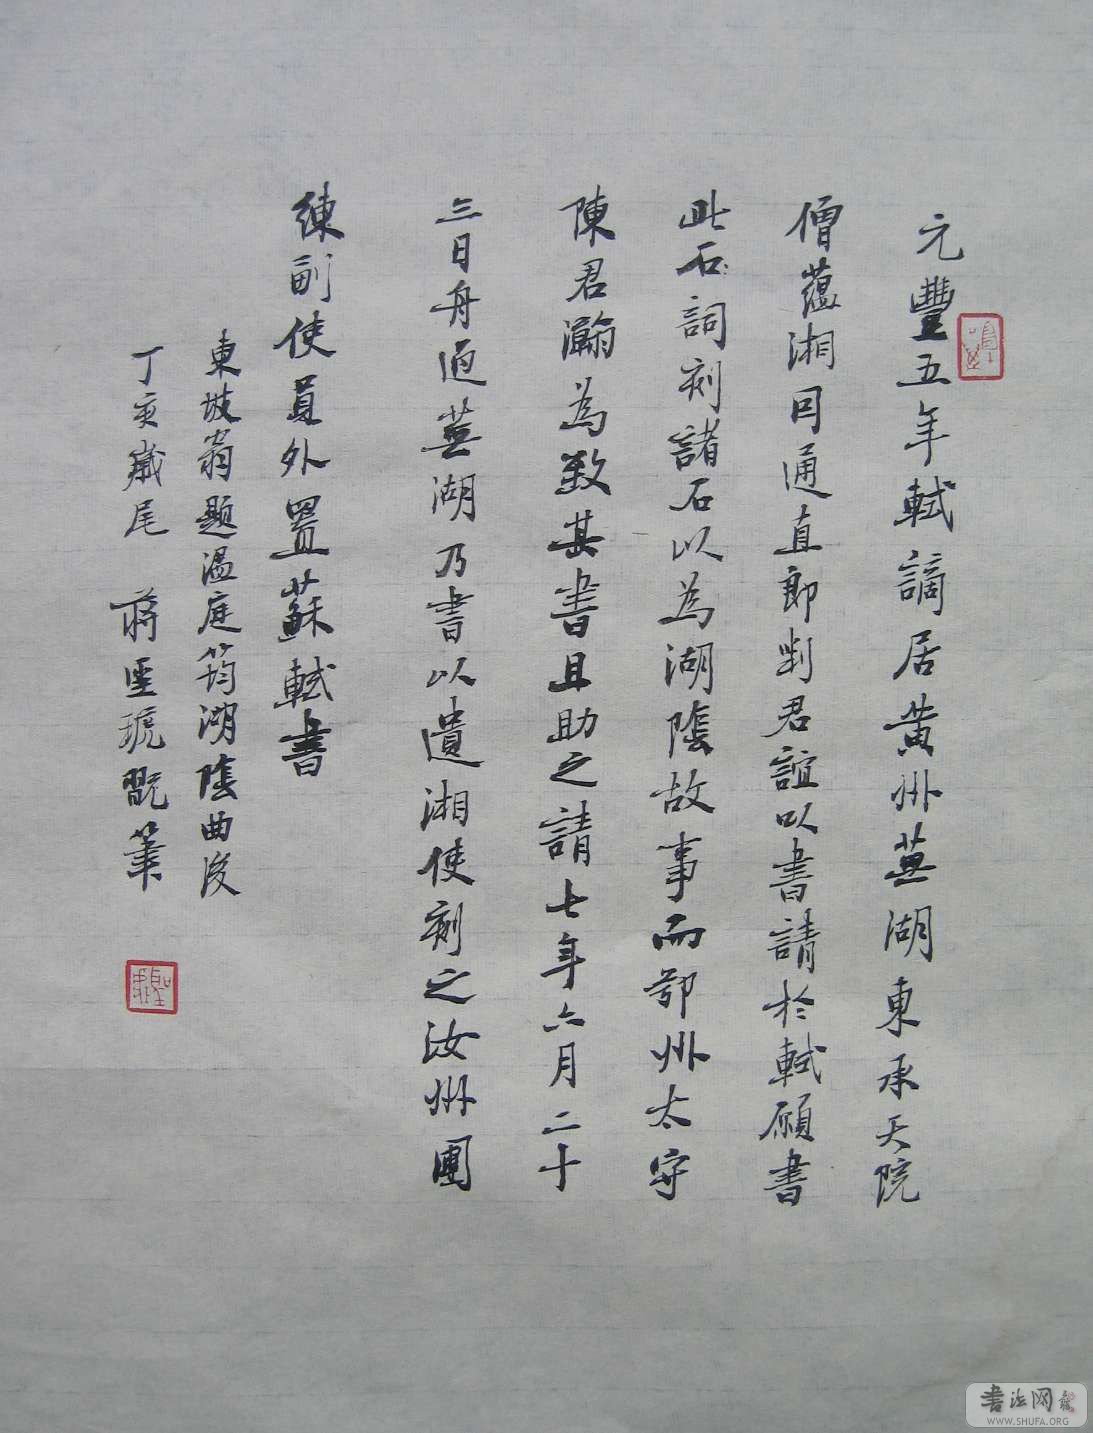 元豐五年軾謫居黄州蕪湖東承天院
僧藴湘因通直郎劉君誼以書請於軾願書
此石詞刻諸石以為湖陰故事而鄂州太守
陳君瀚為致其書且助之請七年六月二十
三日舟過蕪湖乃書以遺湘使刻之汝州團
練副使員外置蘇軾書
東坡翁題温庭筠湖陰曲後
丁亥歲尾 蔣聖琥翫筆
書法网
WWW.SHUFA.ORG